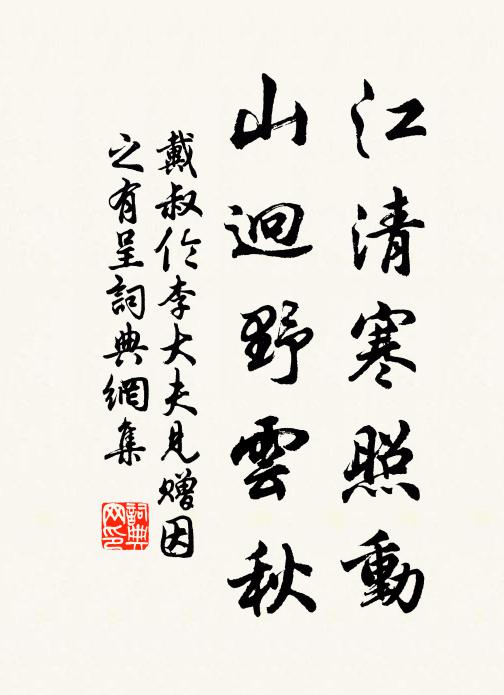 江清寒照動
山迥野雲秋
戴叔伦李大夫見贈因
之有呈詞典網集
詞典
网印